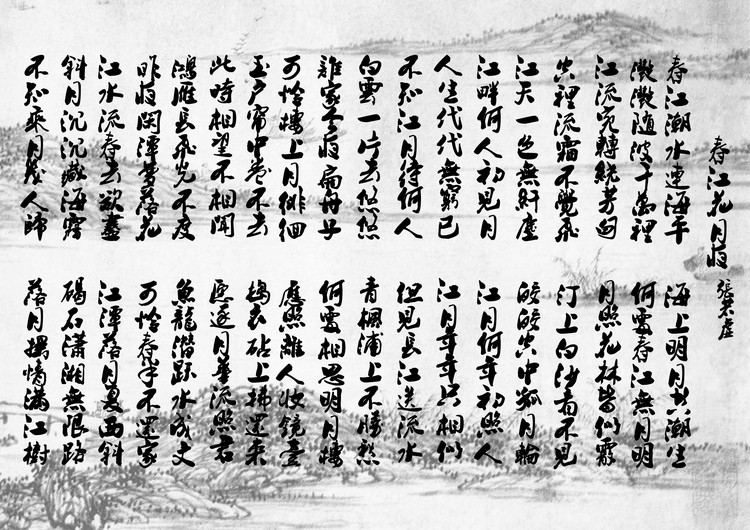 春江花月夜 張若虛
春江潮水連海平 海上明月共潮生
灩灩隨波千萬裡 何處春江無月明
江流宛轉繞芳甸 月照花林皆似霰
空裡流霜不覺飛 汀上白沙看不見
江天一色無纖塵 皎皎空中孤月輪
江畔何人初見月 江月何年初照人
人生代代無窮已 江月年年只相似
不知江月待何人 但見長江送流水
白雲一片去悠悠 青楓浦上不勝愁
誰家今夜扁舟子 何處相思明月樓
可憐樓上月徘徊 應照離人妝鏡臺
玉戶簾中卷不去 搗衣砧上拂還來
此時相望不相聞 願逐月華流照君
鴻雁長飛光不度 魚龍潛躍水成文
昨夜閑潭夢落花 可憐春半不還家
江水流春去欲盡 江潭落月復西斜
斜月沉沉藏海霧 碣石瀟湘無限路
不知乘月幾人歸 落月搖情滿江樹